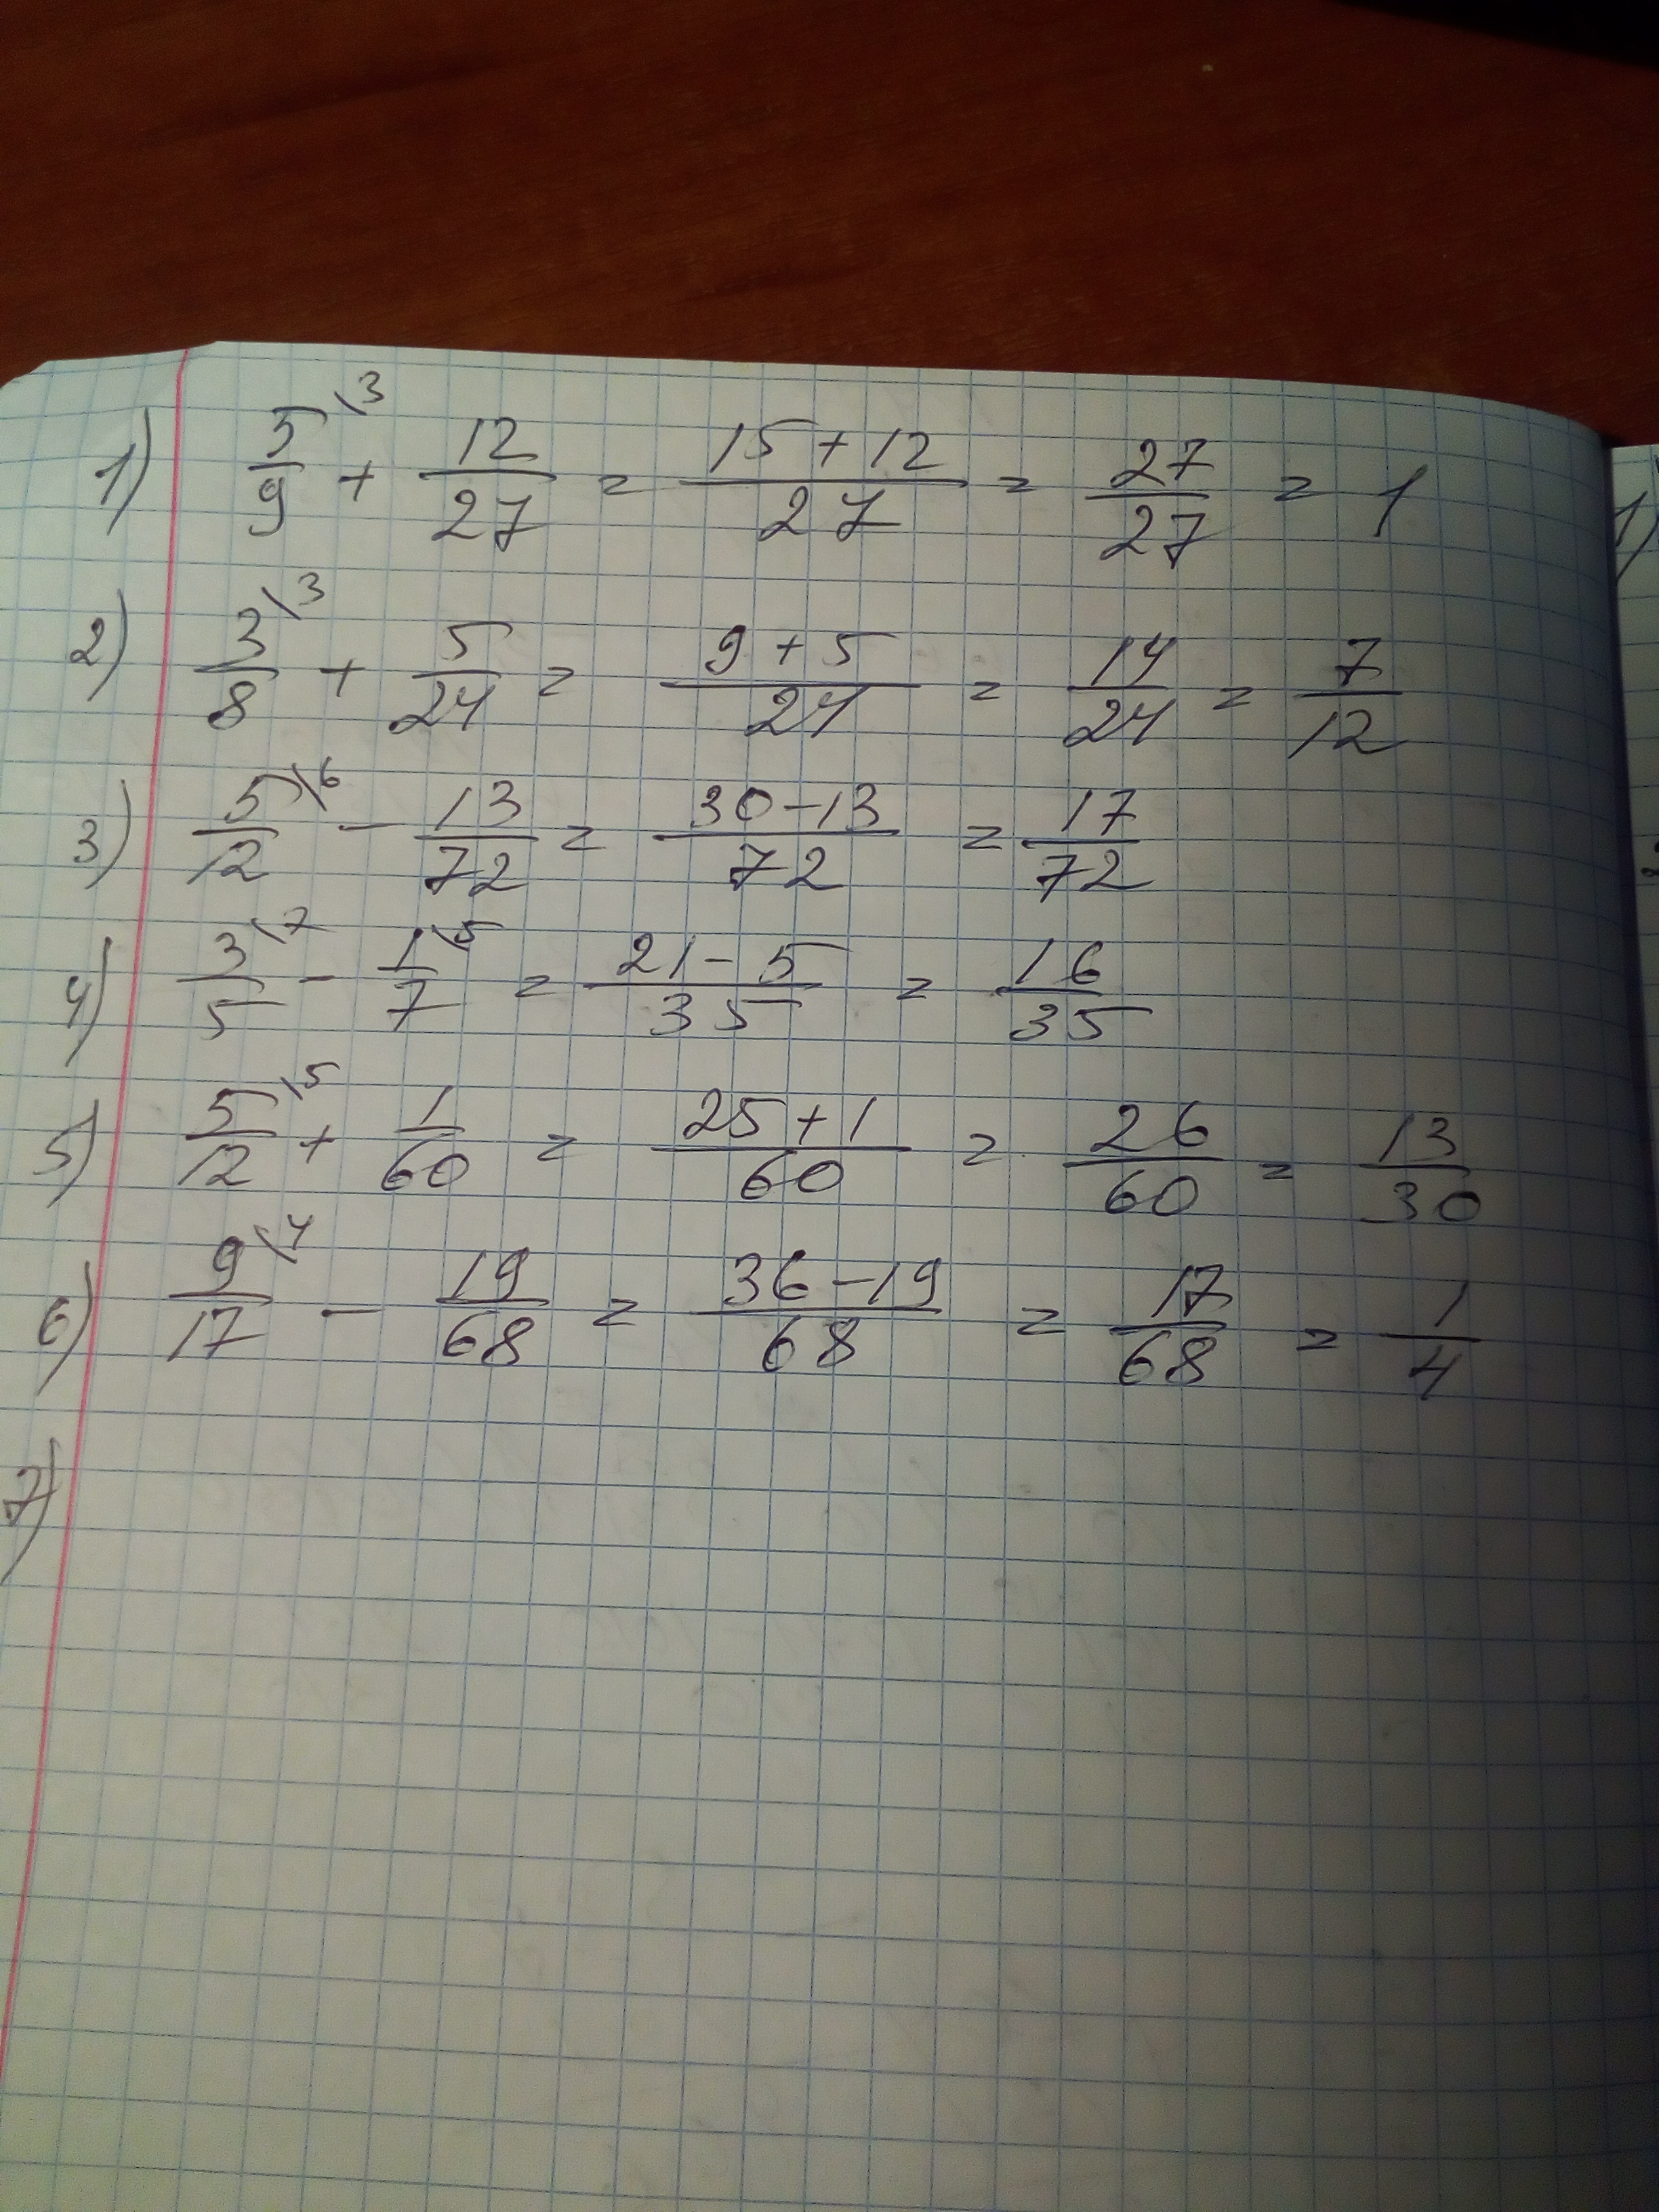 1) 5\3/9 + 12/27 = 15+12/27 = 27/27 = 1
2) 3\3/8 + 5/24 = 9+5/24 = 14/24 = 7/12
3) 5\6/12 - 13/72 = 30-13/72 = 17/72
4) 3\7/5 - 1\5/7 = 21-5/35 = 16/35
5) 5\5/12 + 1/60 = 25+1/60 = 26/60 = 13/30
6) 9\4/17 - 19/68 = 36-19/68 = 17/68 = 1/4
7)
1)